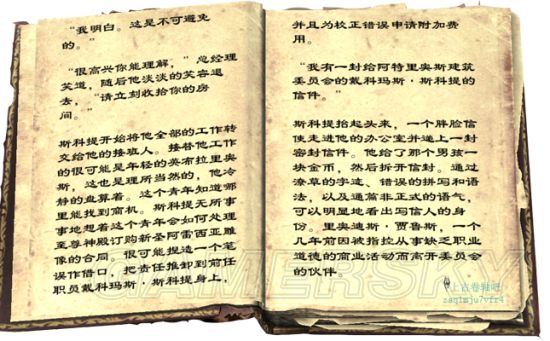 “我明白。这是不可避免
的。”
“很高兴你能理解，”总经理
笑道，随后他淡淡的笑容退
去，“请立刻收拾你的房
间。”
斯科提开始将他全部的工作转
交给他的接班人。接替他工作
的很可能是年轻的英布拉里奥
斯，这也是理所当然的，他冷
静的盘算着。这个青年知道哪
里能找到商机。斯科提无所事
事地想着这个青年会如何处理
至尊神殿订购新圣阿雷西亚雕
像的合同。很可能捏造一个笔
误作借口，把责任推卸到前任
职员戴科玛斯·斯科提身上，
并且为校正错误申请附加费
用。
“我有一封给阿特里奥斯建筑
委员会的戴科玛斯·斯科提的
信件。”
斯科提抬起头来，一个胖脸信
使走进他的办公室并递上一封
密封信件。他给了那个男孩一
块金币，然后拆开信封。通过
潦草的字迹、错误的拼写和语
法，以及通篇非正式的语气，
可以明显地看出写信人的身
份。里奥迪斯·贾鲁斯，一个
几年前因被指控从事缺乏职业
道德的商业活动而离开委员会
的伙伴。
GAMERSKY
上古卷轴吧
zaqimju7vfr4